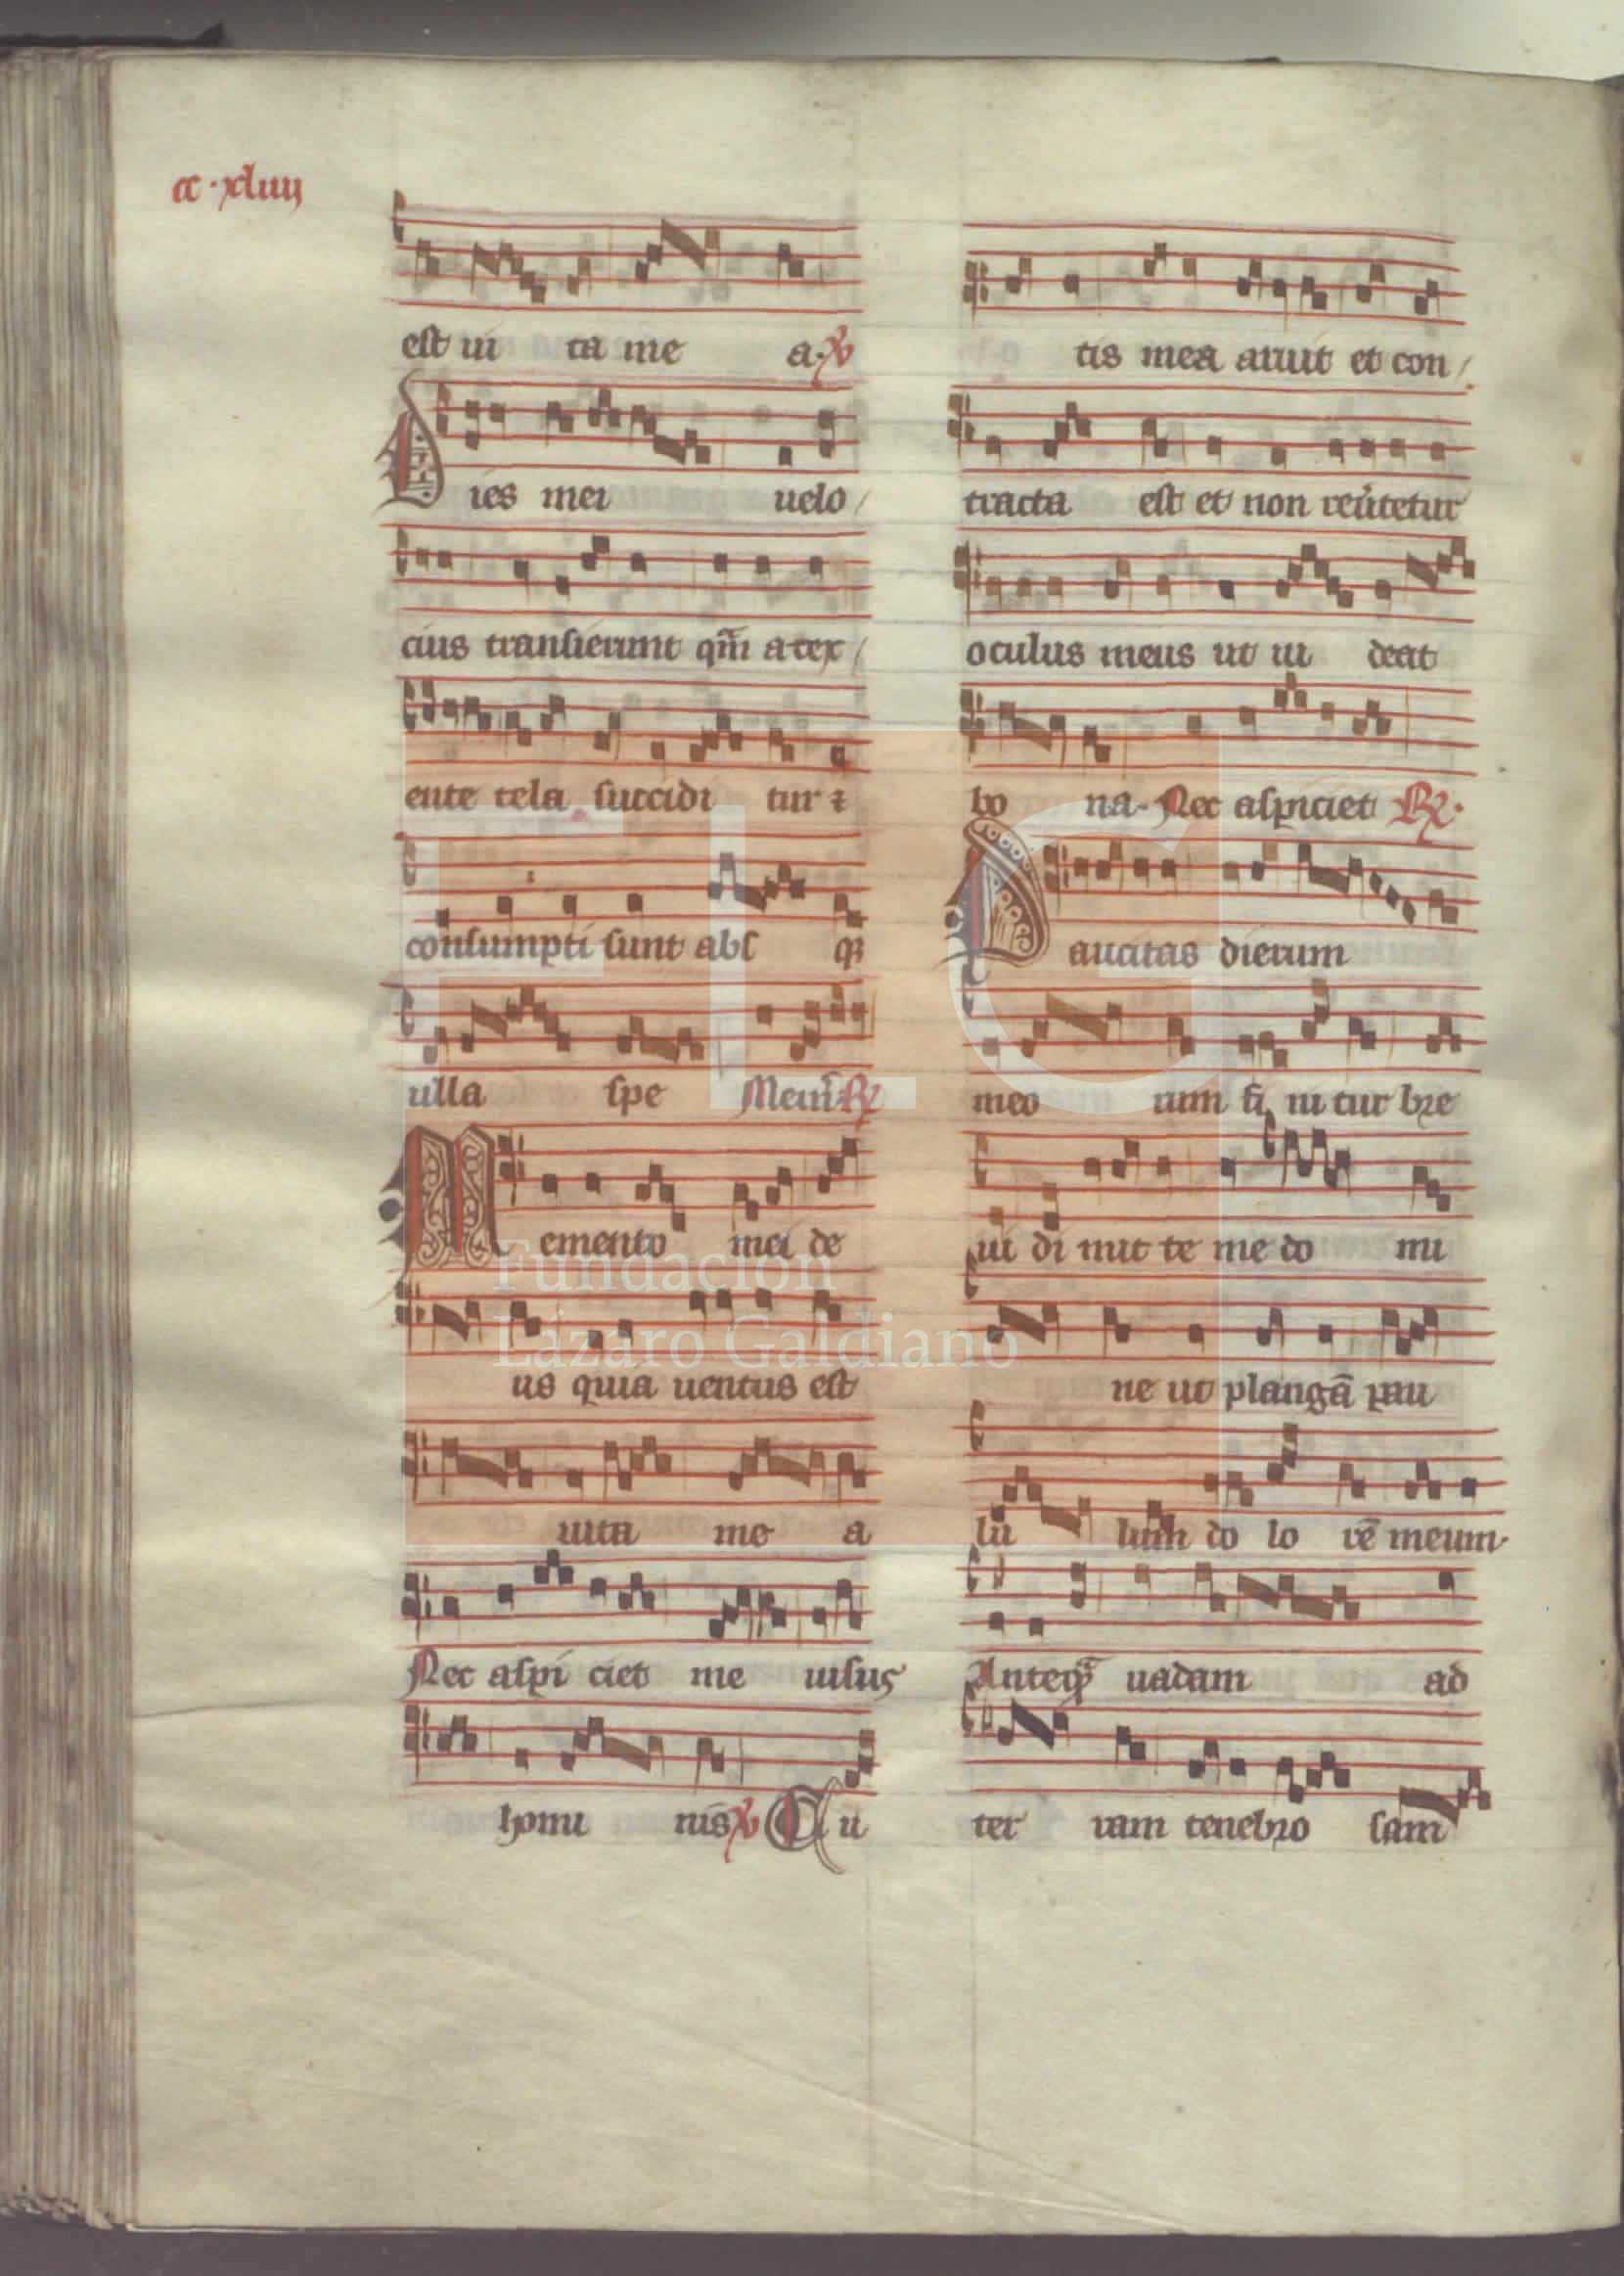 cc·xliiij
est ui ta me a. ℣
Dies mei uelo/
cius transierunt qm̄ a tex/
ente tela succidi tur ⁊
consumpti sunt abs qꝫ
ulla spe Mem̄. ℟
Memento mei de
us quia uentus est
uita me a
Nec aspi ciet me uisus
homi nis ℣ Cu
tis mea aruit et con/
tracta est et non reu̓tetur
oculus meus ut ui deat
bo na. Nec aspiciet ℟.
Paucitas dierum
meo rum fi ni tur bre
ui di mit te me do mi
ne ut plangā pau
lu lum do lo rē meum.
Anteqᷓ uadam ad
ter ram tenebro sam
FLG
Fundación
Lázaro Galdiano